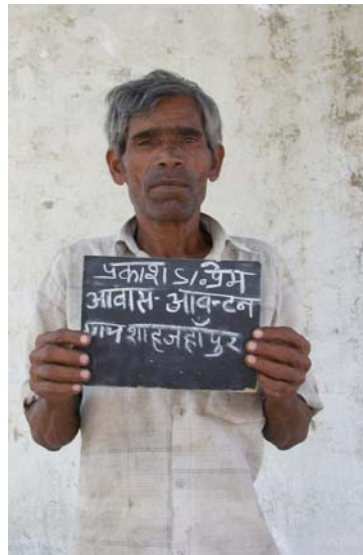 प्रकाश S/. प्रेम
आवास- आवन्टन
ग्राम शाहजहाँपुर